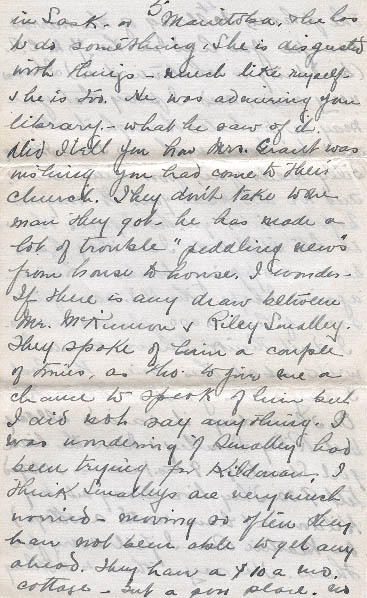 5
in Sask. or Manitoba. She has
to do something. She is disgusted
with things - much like myself
she is too. He was admiring your
library - what he saw of it.
Did I tell you how Mrs. Grant was
wishing you had come to their
church. They don't take to the
man they got - he has made a
lot of trouble "peddling news"
from house to house. I wonder
If there is any draw between
Mr. McKinnon & Riley Smalley.
They spoke of him a couple
of times, as tho' to give me a
chance to speak of him but
I did not say anything. I
was wondering if Smalley had
been trying for Kildonan. I
think Smalleys are very much
worried - moving so often they
have not been able to get any
ahead. They have a $10 a mo.
cottage - but a poor place. no